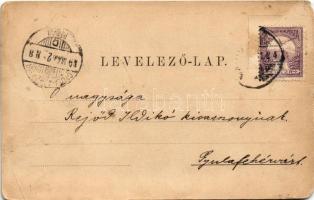 LEVELEZŐ-LAP.
Ő nagysága
Rejőd Ildikó kisasszonynak
Gyulafehérvárt